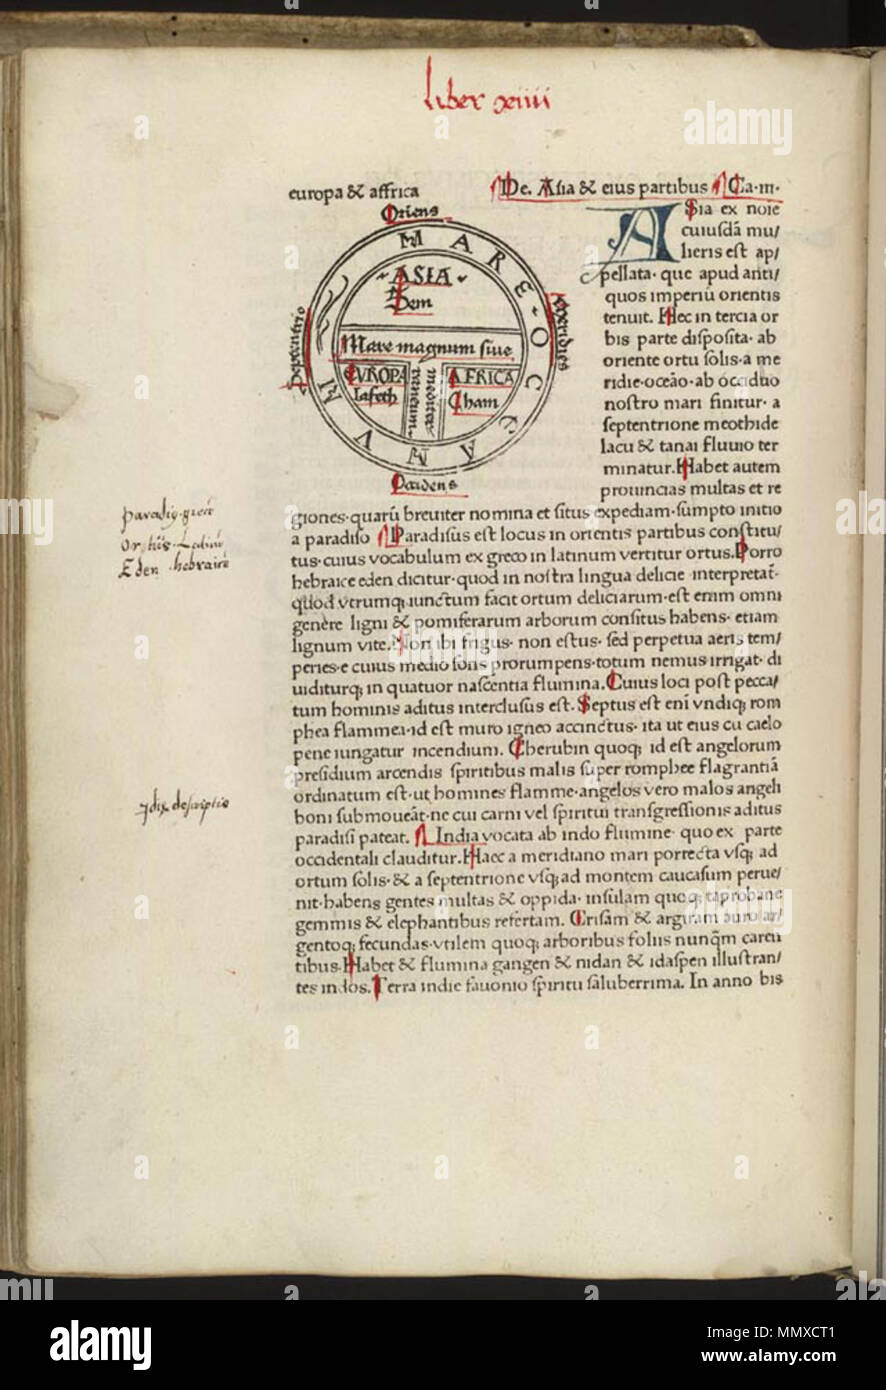 liber xiiii
europa & affrica
De. Asia & eius partibus Ca.iii.
Oriens
MARE OCEANUM
ASIA
Sem
Mare magnum siue
mediterraneum
EVROPA
Iafeth
AFRICA
Cham
Septentrio
Meridies
Occidens
ASia ex noīe
cuiusdā mu/
lieris est ap/
pellata. que apud anti/
quos imperiū orientis
tenuit. Hec in tercia or
bis parte disposita. ab
oriente ortu solis. a me
ridie. oceāo. ab occiduo
nostro mari finitur. a
septentrione meothide
lacu & tanai fluuio ter
minatur. Habet autem
prouincias multas et re
giones. quarū breuiter nomina et situs expediam. sumpto initio
a paradiso Paradisus est locus in orientis partibus constitu/
tus. cuius vocabulum ex greco in latinum vertitur ortus. Porro
hebraice eden dicitur. quod in nostra lingua delicie interpretat̄.
quod vtrumq; iunctum facit ortum deliciarum. est enim omni
genere ligni & pomiferarum arborum consitus habens. etiam
lignum vite. Non ibi frigus. non estus. sed perpetua aeris tem/
peries. e cuius medio fons prorumpens. totum nemus irrigat. di
uiditurq; in quatuor nascentia flumina. Cuius loci post pecca/
tum hominis aditus interclusus est. Septus est enī vndiq; rom
phea flammea. id est muro igneo accinctus. ita ut eius cū caelo
pene iungatur incendium. Cherubin quoq; id est angelorum
presidium arcendis spiritibus malis super romphee flagrantiā
ordinatum est. ut homines flamme. angelos vero malos angeli
boni submoueāt. ne cui carni vel spiritui transgressionis aditus
paradisi pateat. India vocata ab indo flumine. quo ex parte
occidentali clauditur. Haec a meridiano mari porrecta vsq; ad
ortum solis. & a septentrione vsq; ad montem caucasum perue/
nit. habens gentes multas & oppida. insulam quoq; taprobane
gemmis & elephantibus refertam. Crisam & argiram auro ar/
gentoq; fecundas. vtilem quoq; arboribus foliis nunq̄m caren
tibus. Habet & flumina gangen & nidan & idaspen illustran/
tes indos. Terra indie fauonio spiritu saluberrima. In anno bis
Eden hebraice
descriptio
alamy
Image ID: MMXCT1
www.alamy.com